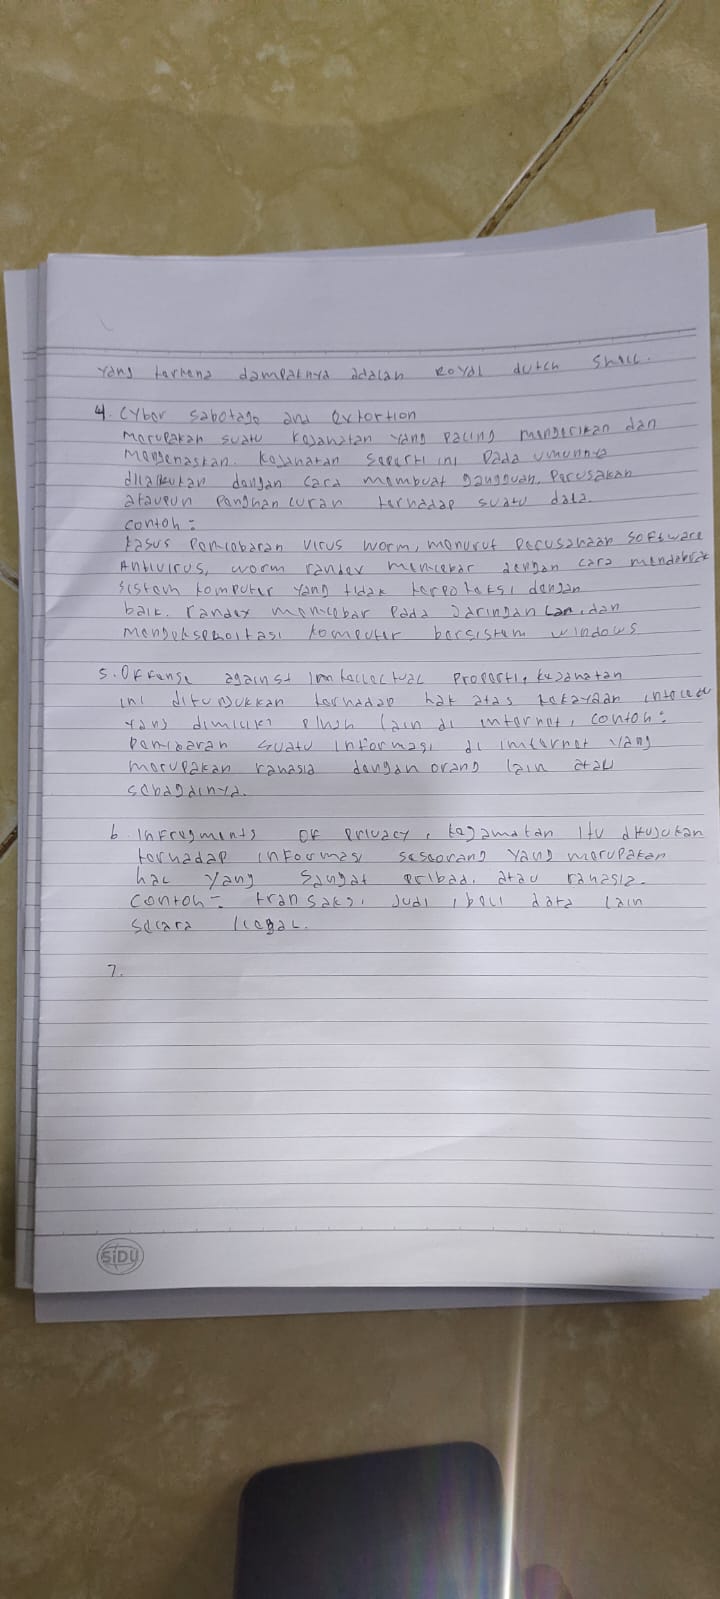 yang terkena dampaknya adalah Royal dutch Shell.
4. Cyber sabotage and Extortion
Merupakan suatu kejahatan yang paling mengerikan dan
mengenaskan. kejahatan seperti ini pada umumnya
dilakukan dengan cara membuat gangguan, perusakan
ataupun penghancuran terhadap suatu data.
contoh :
kasus penyebaran virus worm, menurut perusahaan software
Antivirus, worm randex menyebar dengan cara mendobrak
sistem komputer yang tidak terproteksi dengan
baik. randex menyebar pada jaringan Lan, dan
mengeksploitasi komputer bersistem windows
5. Offense against Intellectual Properti, kejahatan
ini ditunjukkan terhadap hak atas kekayaan
yang dimiliki lain di internet, contoh :
suatu informasi di internet yang
merupakan rahasia dengan orang lain atau
sebagainya.
6. Infregments OF privacy, kejamatan itu ditujukan
terhadap informasi seseorang yang merupakan
hal yang sangat pribadi atau rahasia.
contoh = transaksi Judi, beli data lain
secara ilegal.
7.
SiDU